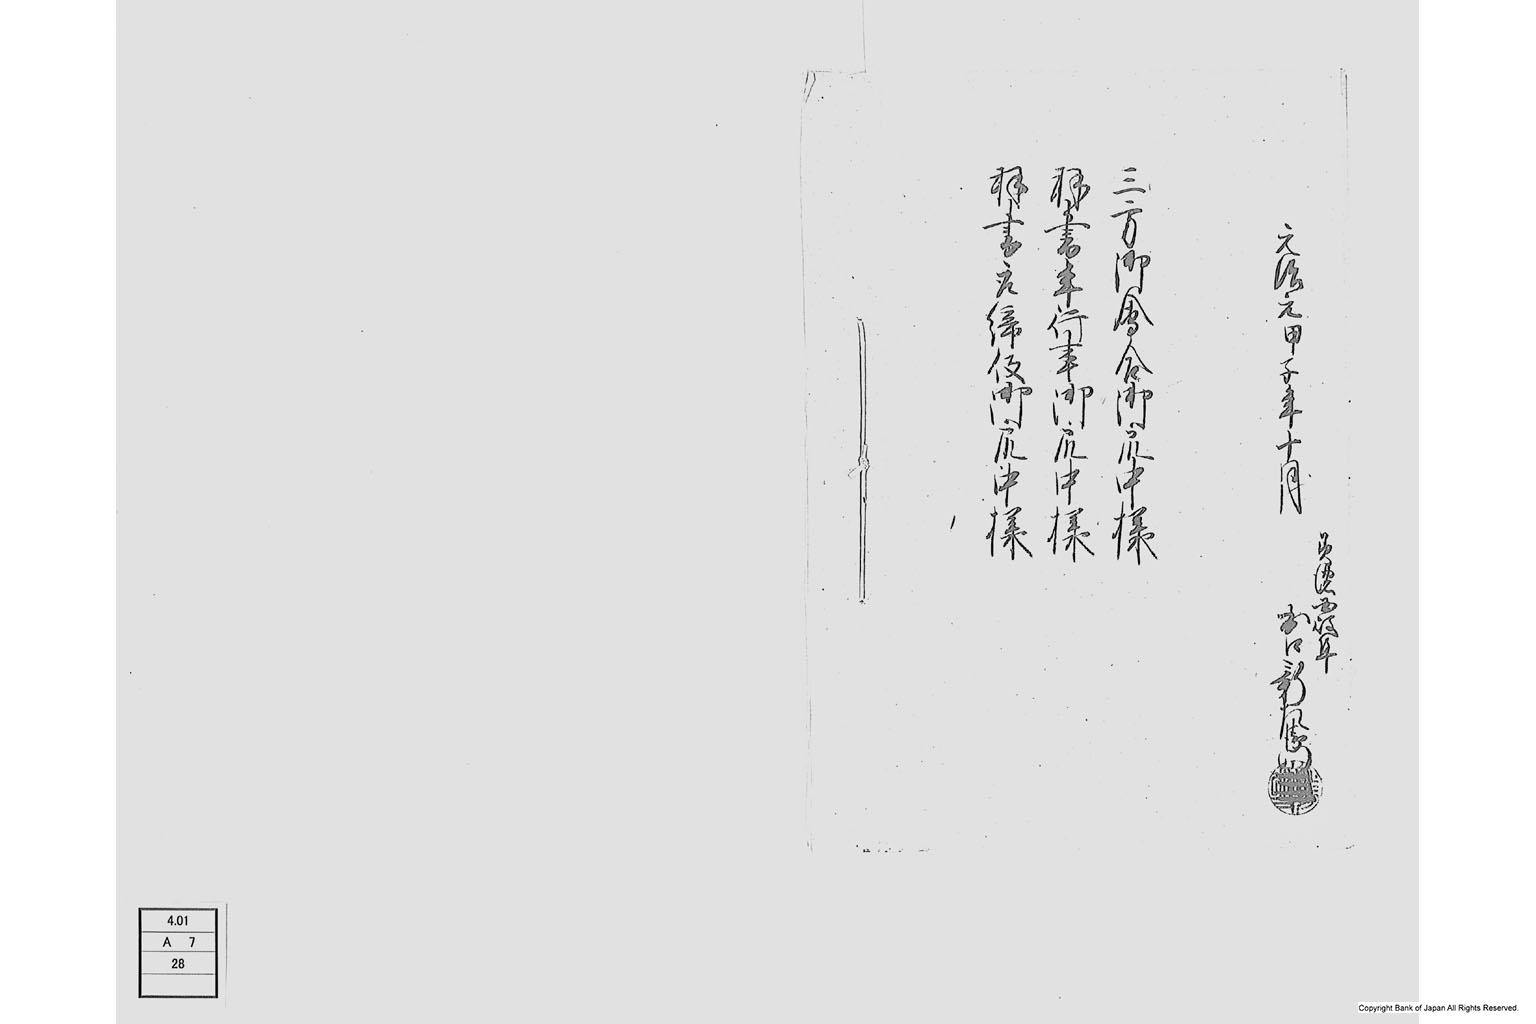 元治元甲子年十月
三方御會合御衆中様
羽書年行事御衆中様
羽書取締役御衆中様
4.01
A 7
28
Copyright Bank of Japan All Rights Reserved.